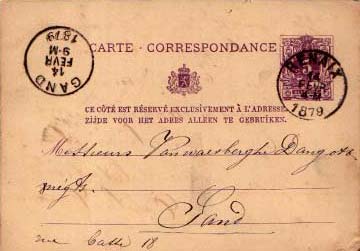 GAND
14
FEVR
9-M
1879
CARTE-CORRESPONDANCE
RENAIX
14
1879
CE CÔTÉ EST RÉSERVÉ EXCLUSIVEMENT À L'ADRESSE.
ZIJDE VOOR HET ADRES ALLEEN TE GEBRUIKEN.
Messieurs Vanwaesberghe Dangotte
négts.
Gand
rue Catte 18